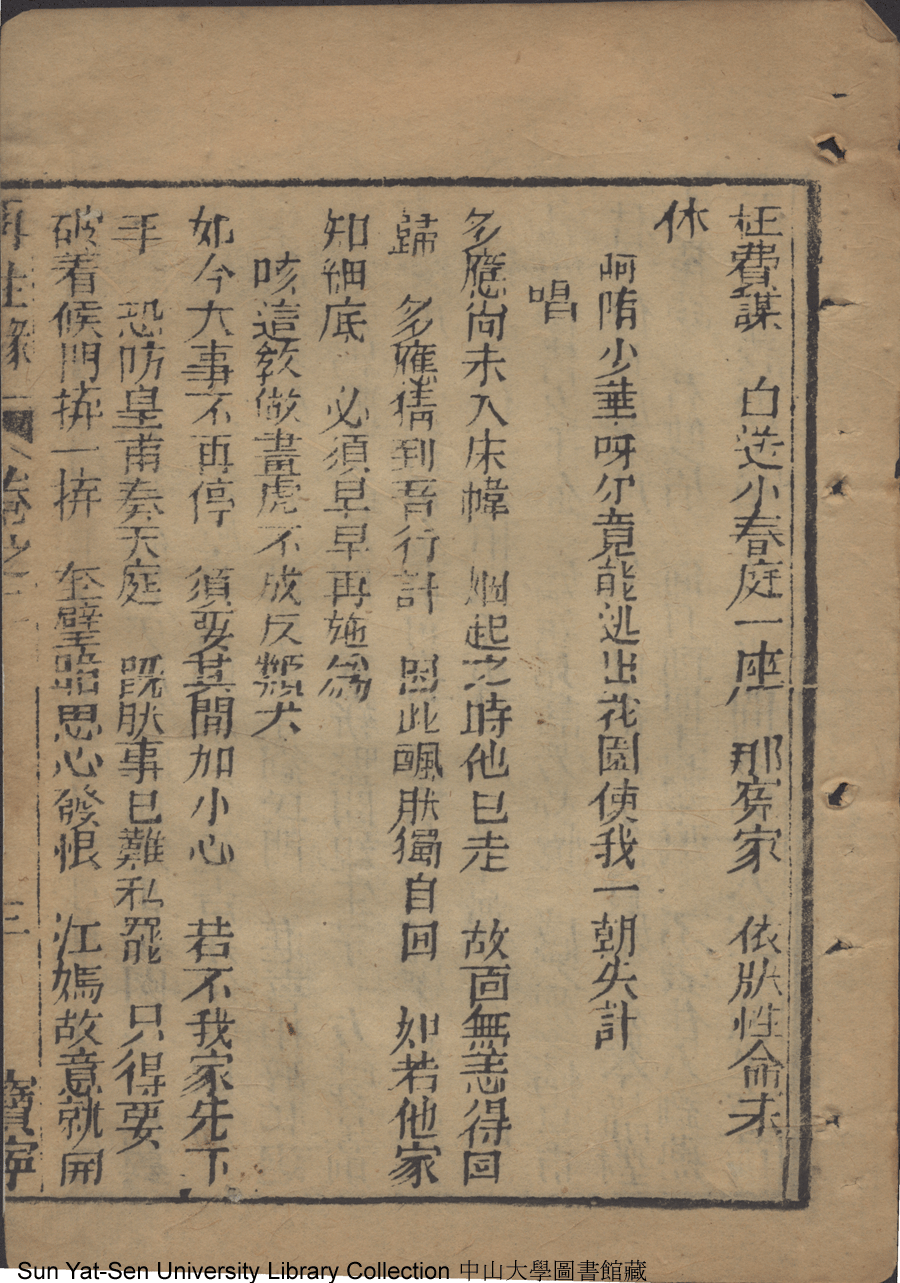 枉費謀　白送小春庭一座　那寃家　依肰性命未
休
阿隋少華呀尔竟能迯出花園使我一朝失計
唱
多應尚未入床幃　烟起之時他已走　故而無恙得回
歸　多應猜到吾行計　因此飄肰獨自回　如若他家
知細底　必須早早再施為
咳這教做畫虎不成反類犬
如今大事不再停　須要其間加小心　若不我家先下
手　恐防皇甫奏天庭　既肰事已難私罷　只得要
破着候門拚一拚　奎璧思心發恨　江媽故意就開
再生緣　卷之　三　寶寧
Sun Yat-Sen University Library Collection 中山大學圖書館藏